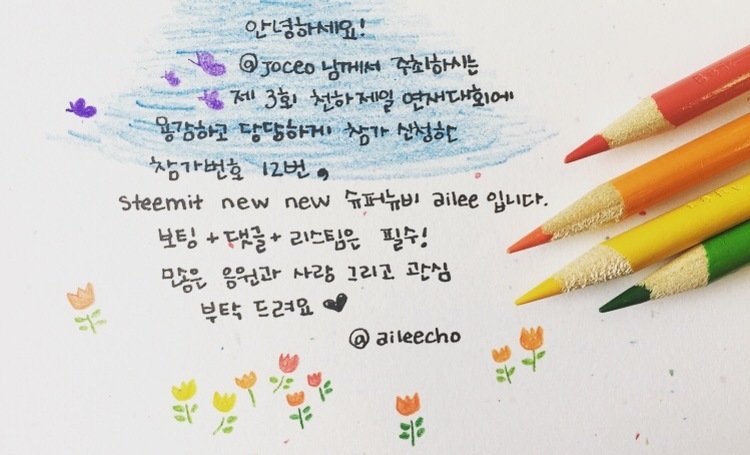 안녕하세요!
@joceo님께서 주최하시는
제 3회 천하제일 연재대회에
용감하고 당당하게 참가 신청한
참가번호 12번,
steemit new new 슈퍼뉴비 ailee입니다.
보팅+댓글+리스팀은 필수!
많은 응원과 사랑 그리고 관심
부탁 드려요♥
@aileecho